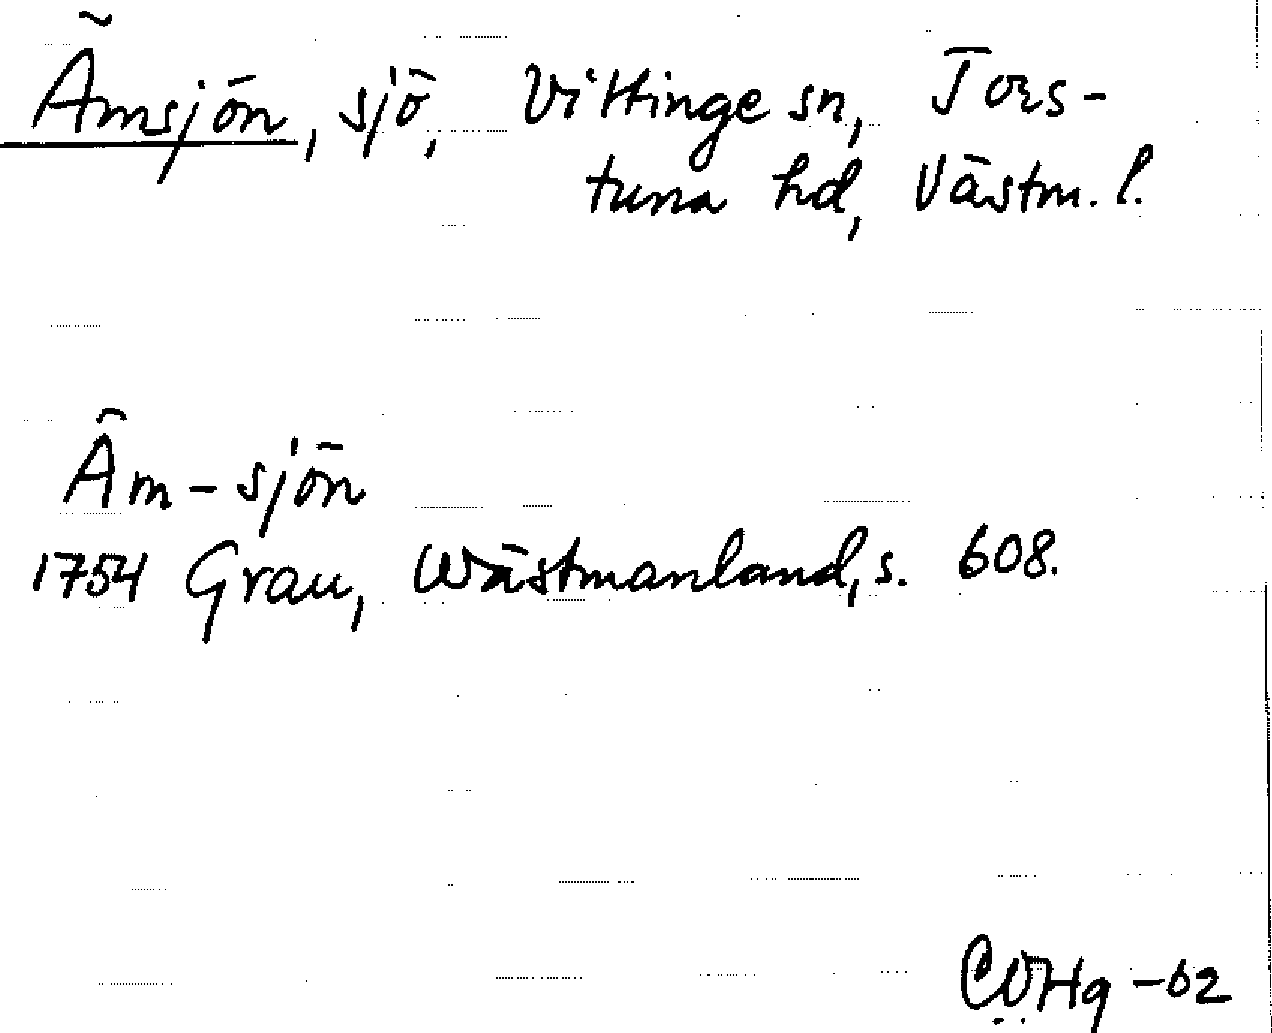 Ämsjön, sjö, Vittinge sn, Tors-
tuna hd, Västm. l.
Äm-sjön
1754 Grau, Wästmanland, s. 608.